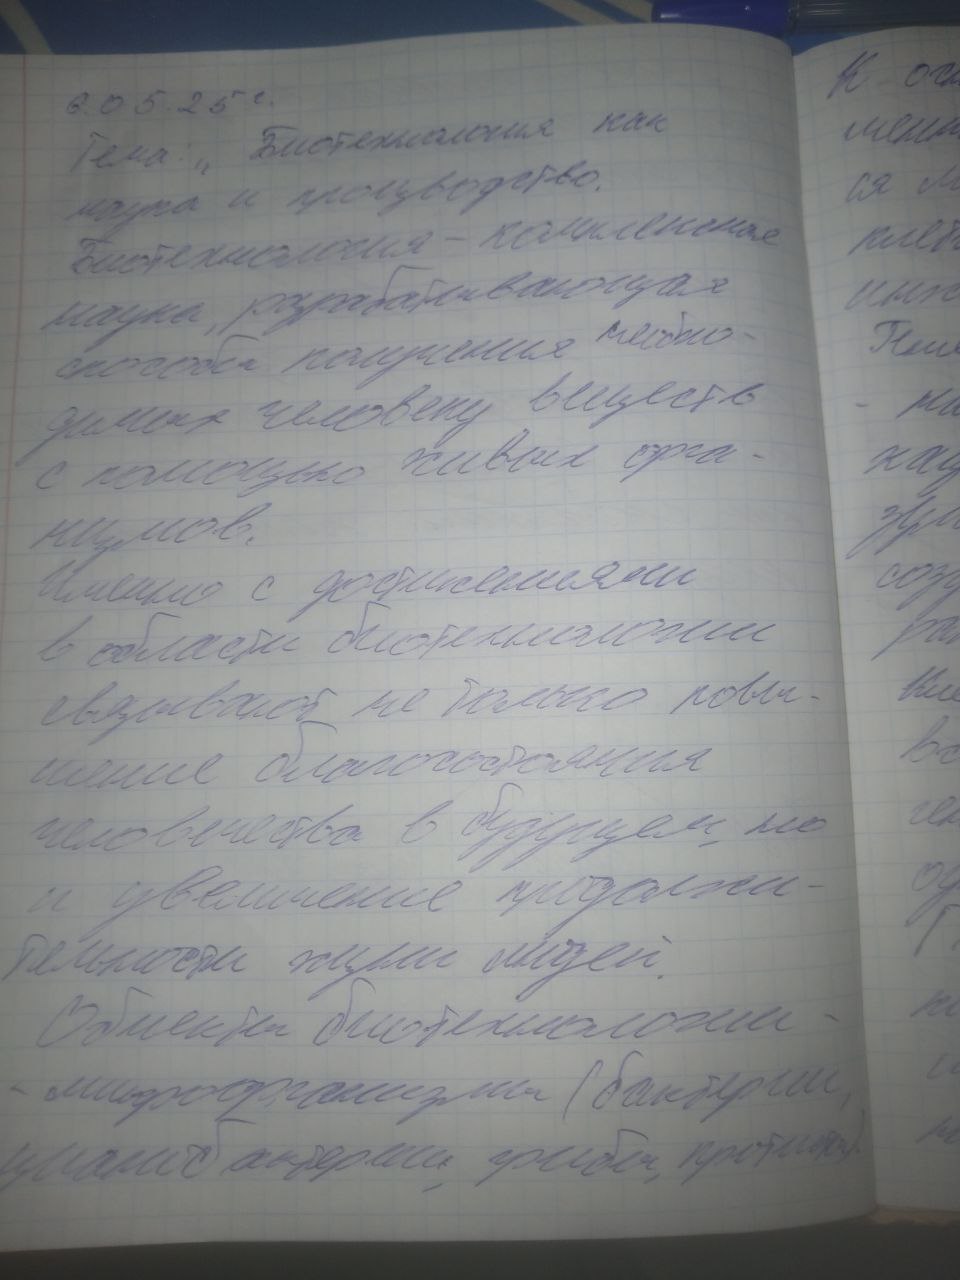 6.05.25 г.
Тема: „Биотехнология как
наука и производство.
Биотехнология – комплексная
наука, разрабатывающая
способы получения необхо-
димых человеку веществ
с помощью живых орга-
низмов.
Именно с достижениями
в области биотехнологии
связывают не только повы-
шение благосостояния
человечества в будущем, но
и увеличение продолжи-
тельности жизни людей.
Объекты биотехнологии –
- микроорганизмы (бактерии,
цианобактерии, грибы, протисты)
К